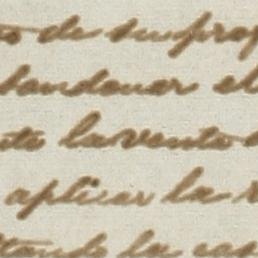 de su prop
bandonar el
la venta
aplicar la
la cas